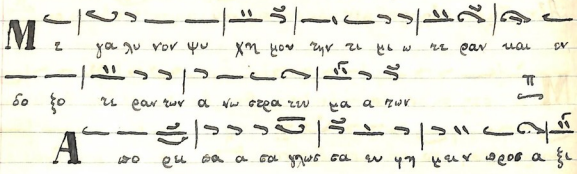 Μ ε γα λυ νον ψυ χη μου την τι μι ω τε ραν και εν
δο ξο τε ραν των α νω στρα τευ μα α των
Α πο ρει πα α σα γλωσ σα ευ φη μειν προς α ξι